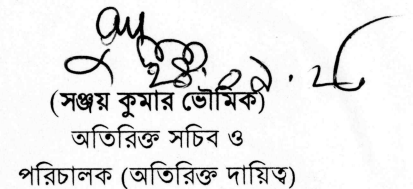 (সঞ্জয় কুমার ভৌমিক)
অতিরিক্ত সচিব ও
পরিচালক (অতিরিক্ত দায়িত্ব)